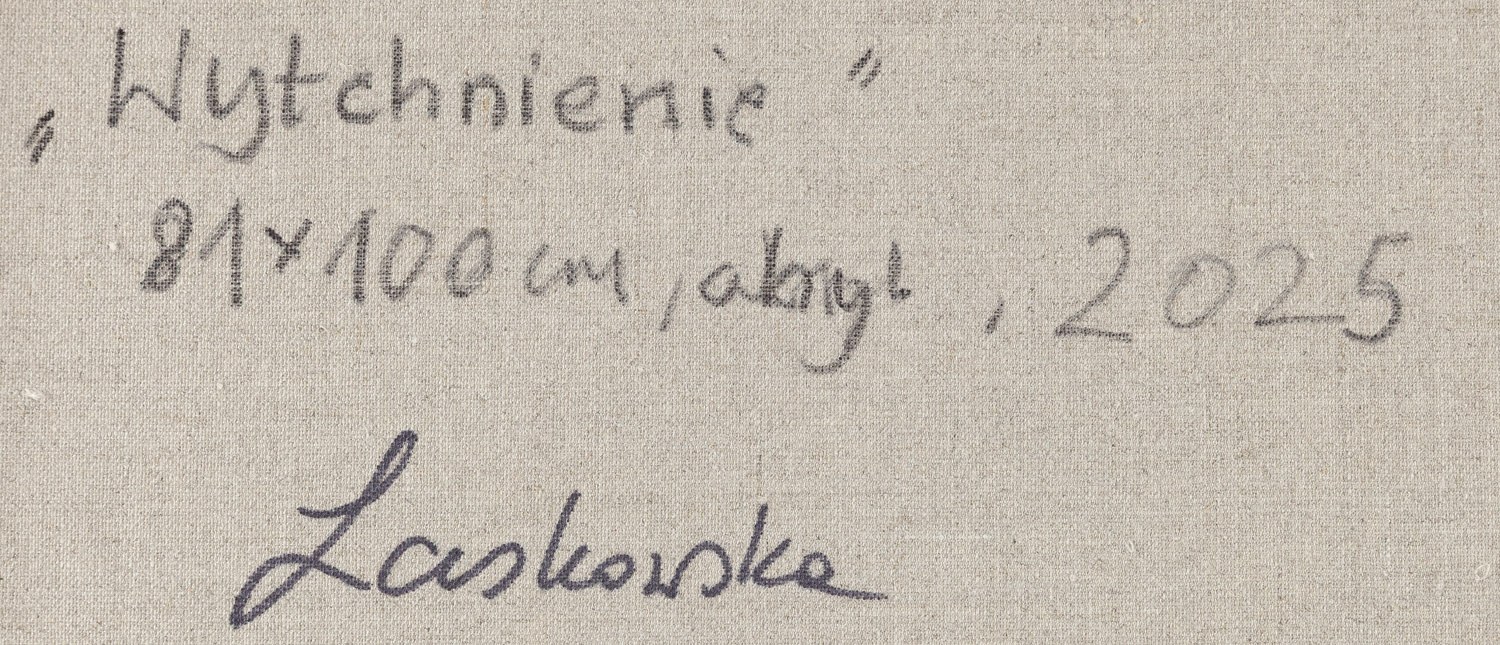 „Wytchnienie"
81x100 cm, akryl, 2025
Laskowska